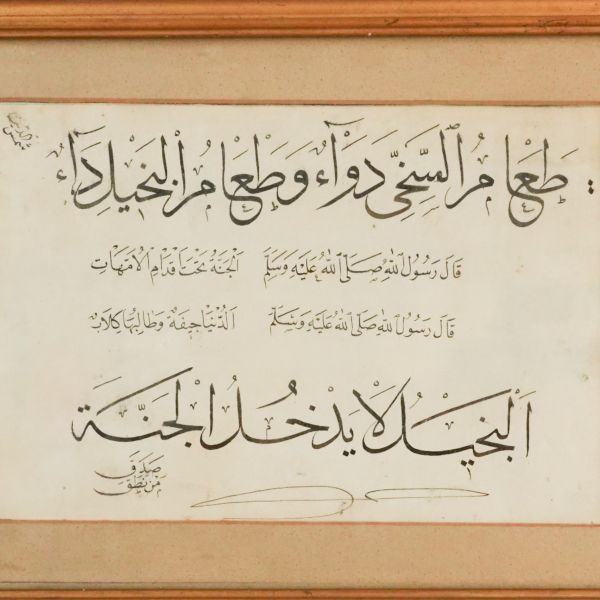 طَعَامُ السَّخِيِّ دَوَآءٌ وَطَعَامُ الْبَخِيْلِ دَآءٌ
قَالَ رَسُولُ اللّٰهِ صَلَّى اللّٰهُ عَلَيْهِ وَسَلَّمَ اَلْجَنَّةُ تَحْتَ اَقْدَامِ الْاُمَّهَاتِ
قَالَ رَسُولُ اللّٰهِ صَلَّى اللّٰهُ عَلَيْهِ وَسَلَّمَ اَلدُّنْيَا جِيفَةٌ وَطَالِبُهَا كِلَابٌ
اَلْبَخِيْلُ لَا يَدْخُلُ الْجَنَّةَ
صَدَقَ
مَنْ نَطَقَ